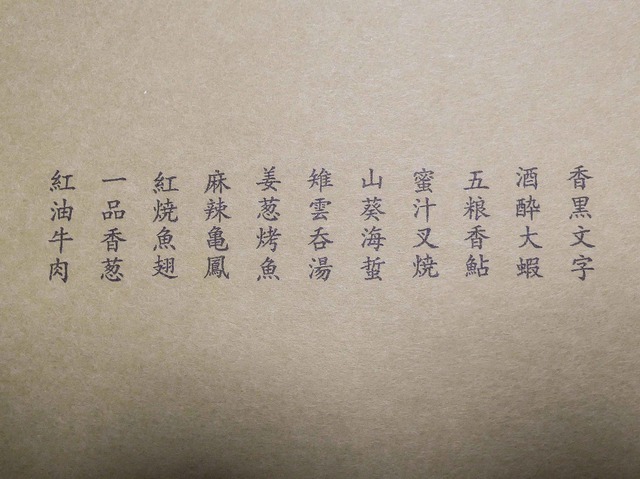 香黒文字
酒酔大蝦
五粮香鮎
蜜汁叉焼
山葵海蜇
雉雲呑湯
姜葱烤魚
麻辣亀鳳
紅焼魚翅
一品香葱
紅油牛肉